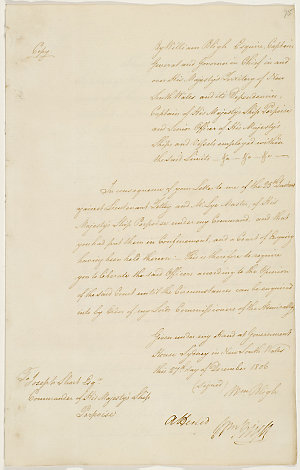 Copy
By William Bligh Esquire, Captain
General and Governor in Chief in and
over His Majesty's Territory of New
South Wales and its Dependencies,
Captain of His Majesty's Ship Porpoise
and Senior Officer of His Majesty's
Ships and Vessels employed within
the said Limits &a &a &a
In consequence of your Letter to me of the 25th Instant
against Lieutenant Tetley and Mr Lye Master of His
Majesty's Ship Porpoise under my Command, and that
you had put them in Confinement and a Court of Enquiry
having been held thereon: This is therefore to require
you to liberate the said Officers according to the Opinion
of the said Court until the Circumstances can be enquired
into by Order of my Lords Commissioners of the Admiralty
Given under my Hand at Government
House Sydney in New South Wales
this 27th day of December 1806
(signed) Wm Bligh
To Joseph Short Esqr
Commander of His Majesty's Ship
Porpoise
Wm Bligh